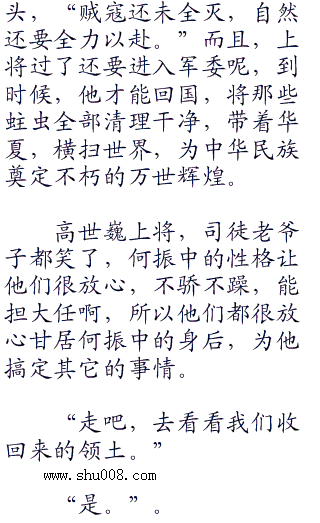 头，“贼寇还未全灭，自然
还要全力以赴。”而且，上
将过了还要进入军委呢，到
时候，他才能回国，将那些
蛀虫全部清理干净，带着华
夏，横扫世界，为中华民族
奠定不朽的万世辉煌。
高世巍上将，司徒老爷
子都笑了，何振中的性格让
他们很放心，不骄不躁，能
担大任啊，所以他们都很放
心甘居何振中的身后，为他
搞定其它的事情。
“走吧，去看看我们收
回来的领土。”
www.shu008.com
“是。”。